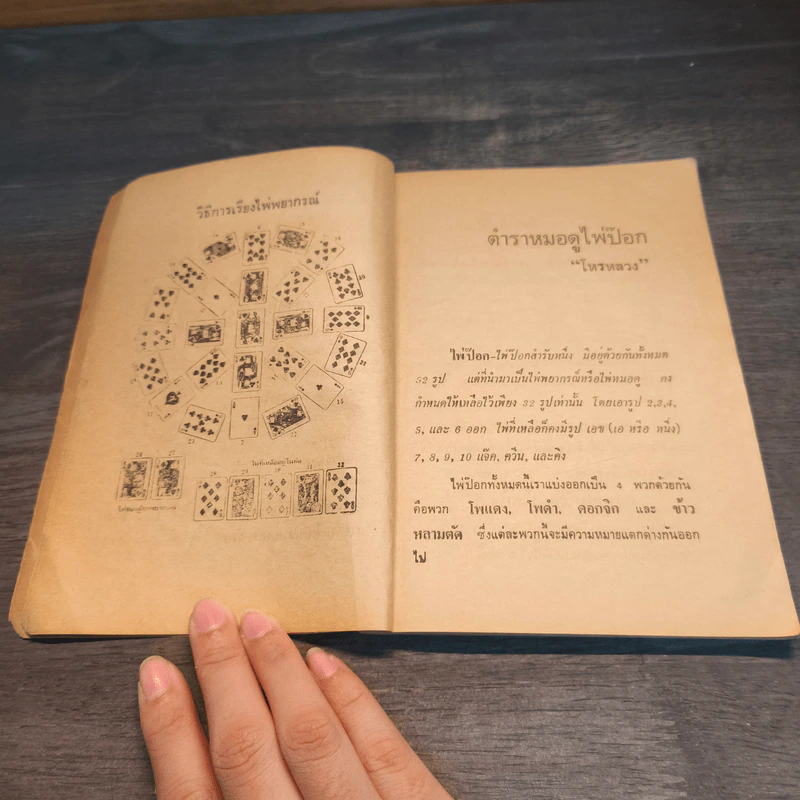 วิธีการเรียงไพ่พยากรณ์
ตำราหมอดูไพ่ป๊อก
"โหรหลวง"
ไพ่ป๊อก-ไพ่ป๊อกสำรับหนึ่ง มีอยู่ด้วยกันทั้งหมด
52 รูป แต่ที่นำมาเป็นไพ่พยากรณ์หรือไพ่หมอดู คง
กำหนดให้เหลือไว้เพียง 32 รูปเท่านั้น โดยเอารูป 2,3,4,
5, และ 6 ออก ไพ่ที่เหลือก็คงมีรูป เอซ (เอ หรือ หนึ่ง)
7, 8, 9, 10 แจ๊ค, ควีน, และคิง
ไพ่ป๊อกทั้งหมดนี้เราแบ่งออกเป็น 4 พวกด้วยกัน
คือพวก โพแดง, โพดำ, ดอกจิก และ ข้าว
หลามตัด ซึ่งแต่ละพวกนี้จะมีความหมายแตกต่างกันออก
ไป